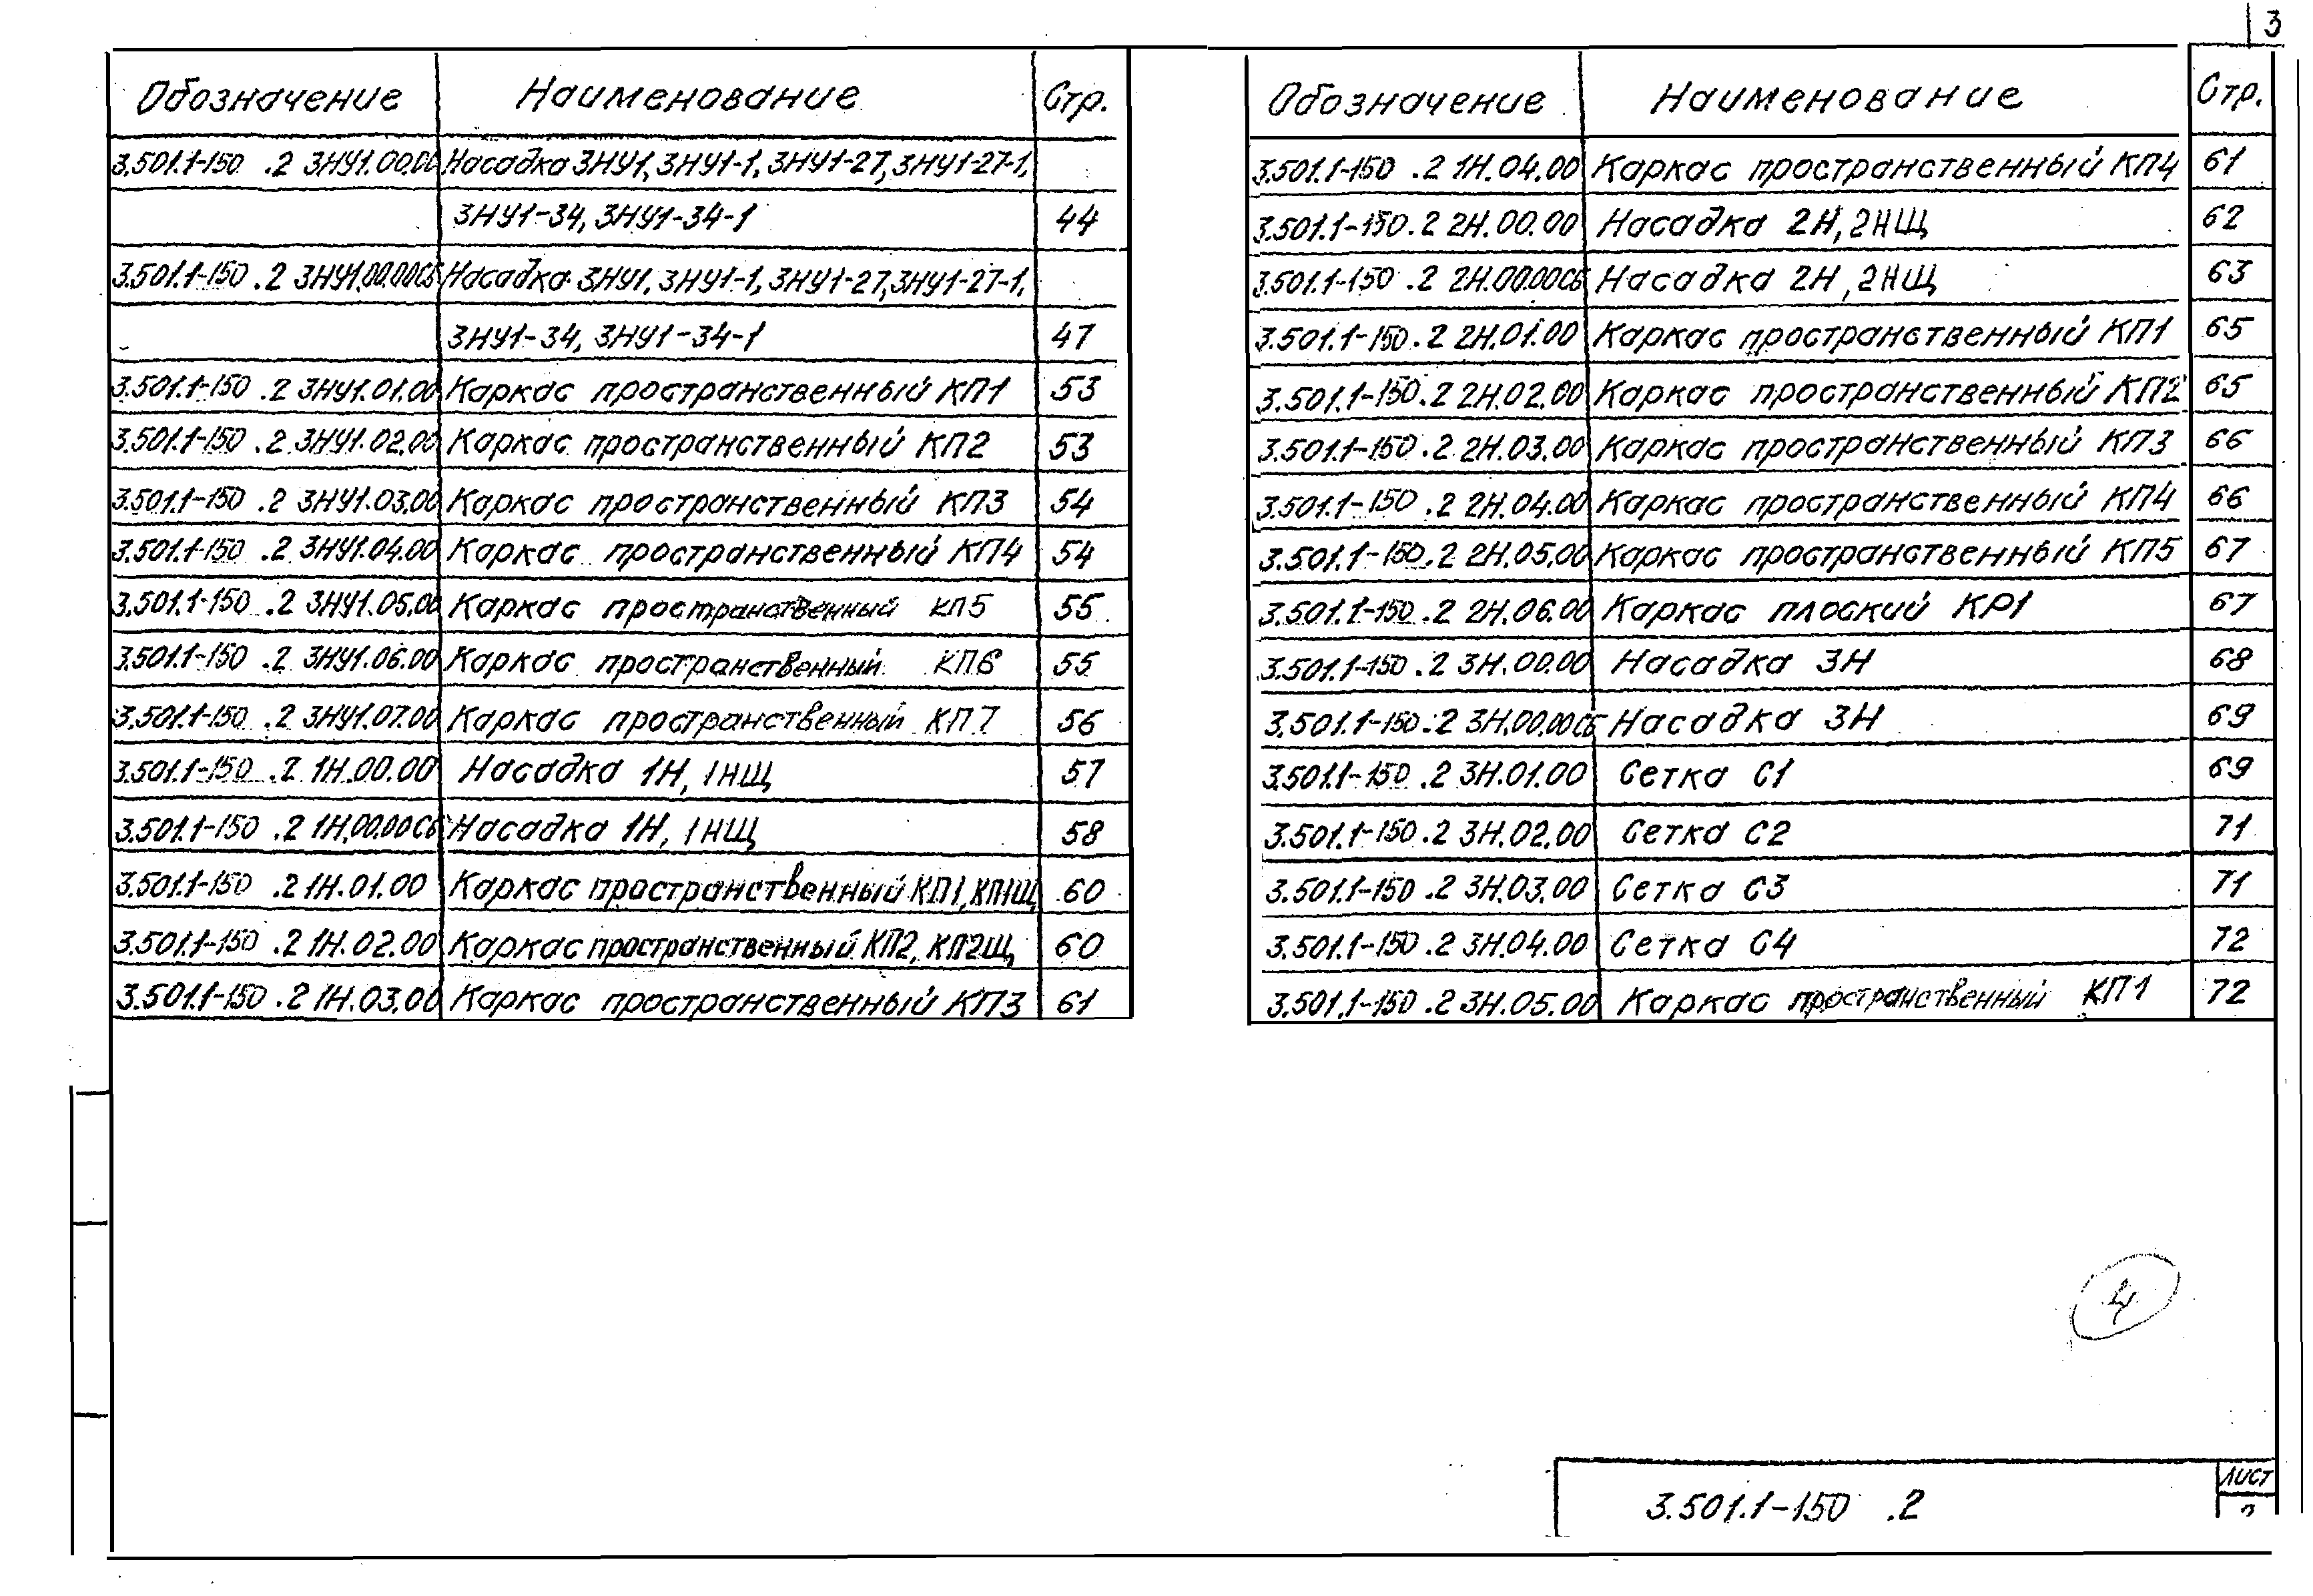 3
Обозначение Наименование Стр.
3.501.1-150 .2 3НУ1.00.00 Насадка 3НУ1, 3НУ1-1, 3НУ1-27, 3НУ1-27-1,
3НУ1-34, 3НУ1-34-1 44
3.501.1-150 .2 3НУ1.00.00СБ Насадка 3НУ1, 3НУ1-1, 3НУ1-27, 3НУ1-27-1,
3НУ1-34, 3НУ1-34-1 47
3.501.1-150 .2 3НУ1.01.00 Каркас пространственный КП1 53
3.501.1-150 .2 3НУ1.02.00 Каркас пространственный КП2 53
3.501.1-150 .2 3НУ1.03.00 Каркас пространственный КП3 54
3.501.1-150 .2 3НУ1.04.00 Каркас пространственный КП4 54
3.501.1-150 .2 3НУ1.05.00 Каркас пространственный КП5 55
3.501.1-150 .2 3НУ1.06.00 Каркас пространственный КП6 55
3.501.1-150 .2 3НУ1.07.00 Каркас пространственный КП7 56
3.501.1-150 .2 1Н.00.00 Насадка 1Н, 1НЩ 57
3.501.1-150 .2 1Н.00.00СБ Насадка 1Н, 1НЩ 58
3.501.1-150 .2 1Н.01.00 Каркас пространственный КП1, КП1Щ 60
3.501.1-150 .2 1Н.02.00 Каркас пространственный КП2, КП2Щ 60
3.501.1-150 .2 1Н.03.00 Каркас пространственный КП3 61
Обозначение Наименование Стр.
3.501.1-150 .2 1Н.04.00 Каркас пространственный КП4 61
3.501.1-150 .2 2Н.00.00 Насадка 2Н, 2НЩ 62
3.501.1-150 .2 2Н.00.00СБ Насадка 2Н, 2НЩ 63
3.501.1-150 .2 2Н.01.00 Каркас пространственный КП1 65
3.501.1-150 .2 2Н.02.00 Каркас пространственный КП2 65
3.501.1-150 .2 2Н.03.00 Каркас пространственный КП3 66
3.501.1-150 .2 2Н.04.00 Каркас пространственный КП4 66
3.501.1-150 .2 2Н.05.00 Каркас пространственный КП5 67
3.501.1-150 .2 2Н.06.00 Каркас плоский КР1 67
3.501.1-150 .2 3Н.00.00 Насадка 3Н 68
3.501.1-150 .2 3Н.00.00СБ Насадка 3Н 69
3.501.1-150 .2 3Н.01.00 Сетка С1 69
3.501.1-150 .2 3Н.02.00 Сетка С2 71
3.501.1-150 .2 3Н.03.00 Сетка С3 71
3.501.1-150 .2 3Н.04.00 Сетка С4 72
3.501.1-150 .2 3Н.05.00 Каркас пространственный КП1 72
4
3.501.1-150 .2
Лист